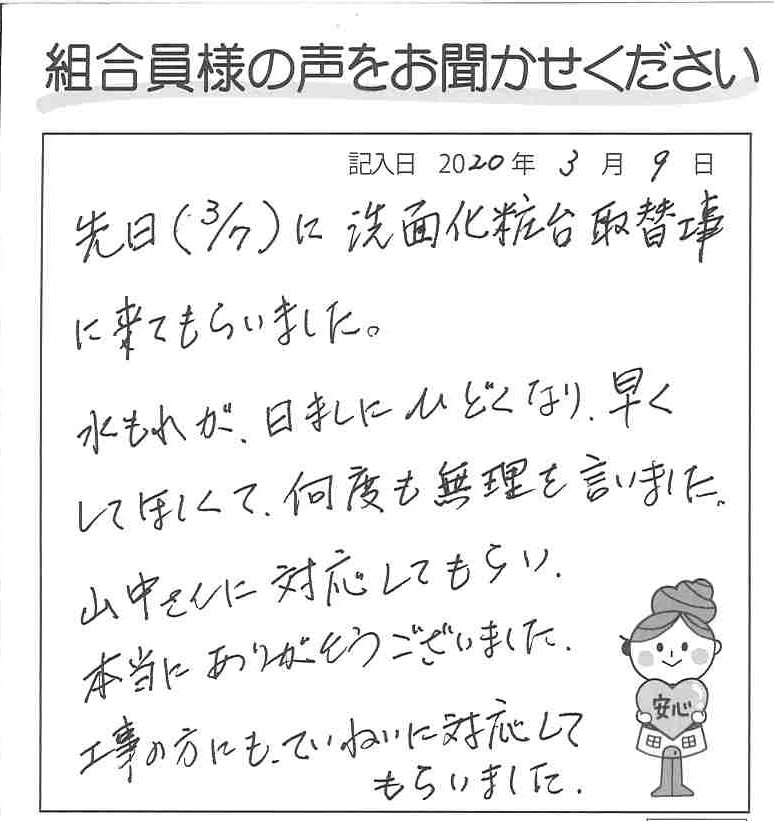 組合員様の声をお聞かせください
記入日 2020年 3月 9日
先日(3/7)に 洗面化粧台取替工事
に来てもらいました。
水もれが、日ましにひどくなり、早く
してほしくて、何度も無理を言いました。
山中さんに対応してもらい、
本当にありがとうございました。
工事の方にも、ていねいに対応して
もらいました。
安心